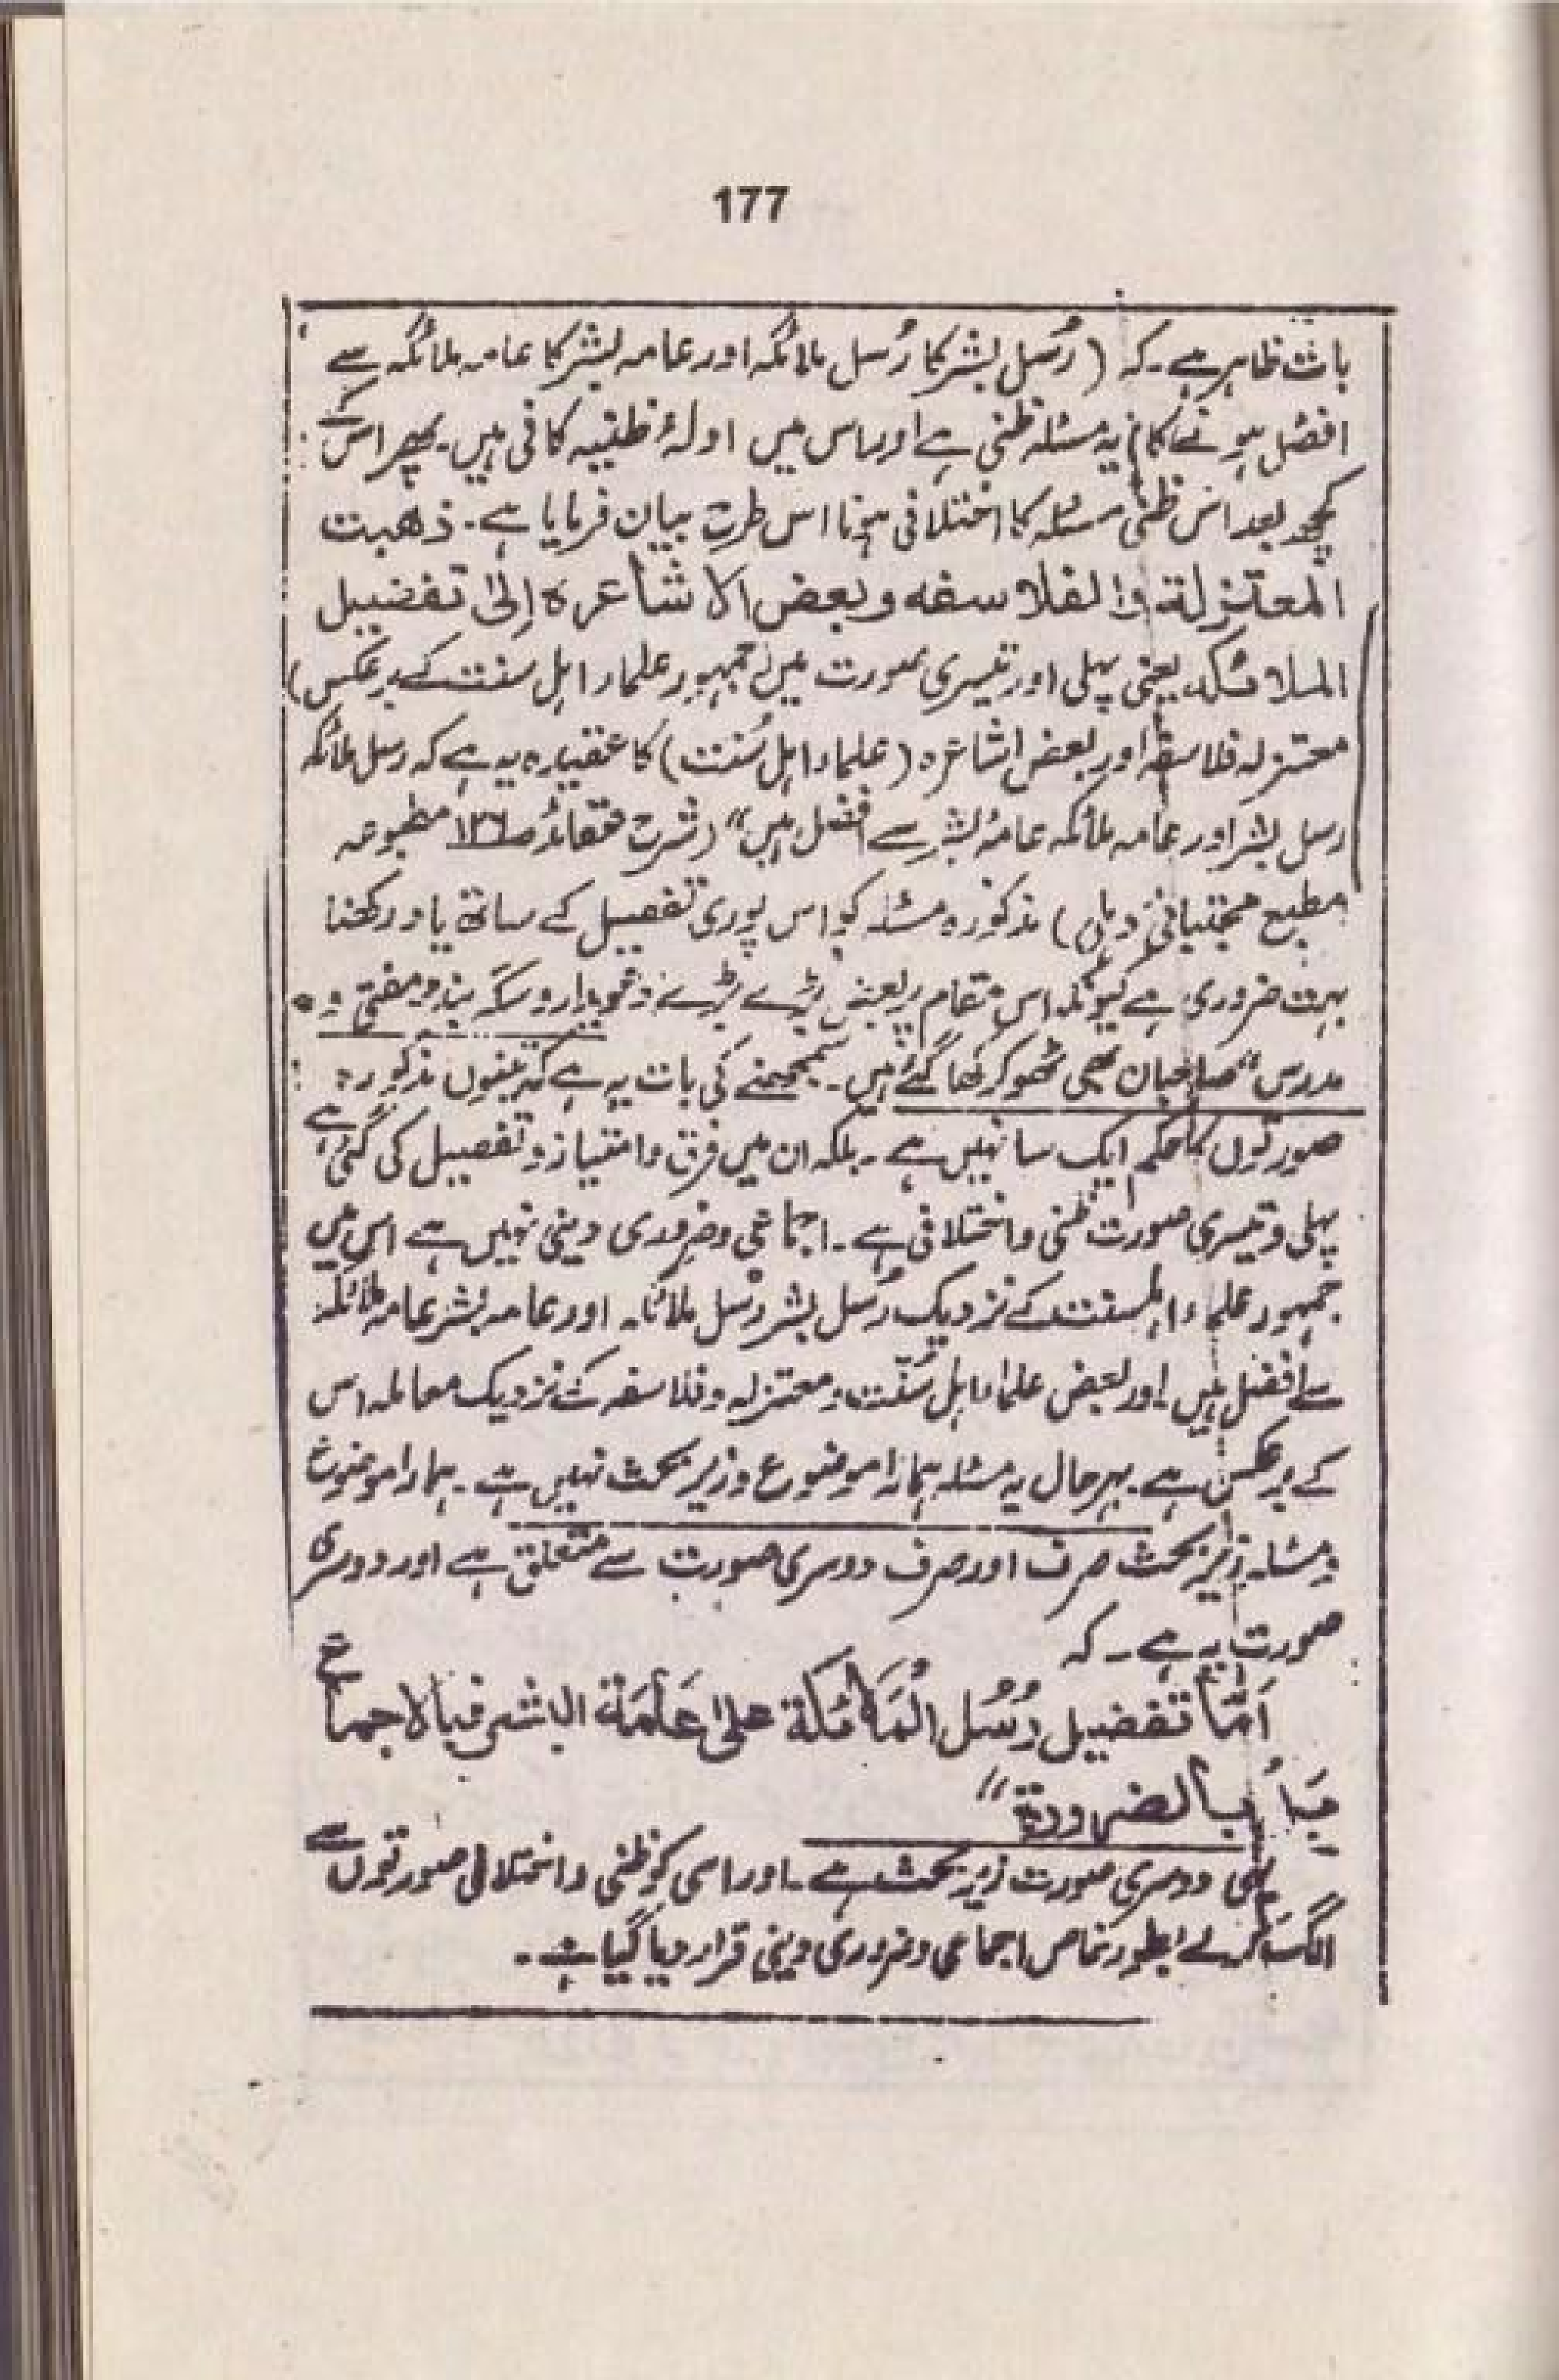 177
بات ظاہر ہے۔ کہ (رُسل بشر کا رُسل ملائکہ اور عامہ بشر کا عامہ ملائکہ سے
افضل ہونے کا) یہ مسئلہ ظنی ہے اور اس میں ادلۂ ظنیہ کافی ہیں۔ پھر اس کے
کچھ بعد اس ظنی مسئلہ کا اختلافی ہونا اس طرح بیان فرمایا ہے۔ ذھبت
المعتزلة والفلاسفه وبعض الاشاعره اِلیٰ تفضیل
الملائکہ یعنی پہلی اور تیسری صورت میں (جمہور علماء اہل سنت کے برعکس)
معتزلہ فلاسفہ اور بعض اشاعرہ (علماء اہل سُنت) کا عقیدہ یہ ہے کہ رسل ملائکہ
رسل بشر اور عامہ ملائکہ عامۂ بشر سے افضل ہیں" (شرح عقائد ص۱۲۶ مطبوعہ
مطبع مجتبائی دہلی) مذکورہ مسئلہ کو اس پوری تفصیل کے ساتھ یاد رکھنا
بہت ضروری ہے کیونکہ اس مقام پر بعض بڑے بڑے ذمہ دار و سکہ بند مفتی و
مدرس" صاحبان بھی ٹھوکر کھا گئے ہیں۔ سمجھنے کی بات یہ ہے کہ تینوں مذکورہ
صورتوں کا حکم ایک سا نہیں ہے۔ بلکہ ان میں فرق و امتیاز و تفصیل کی گئی ہے
پہلی و تیسری صورت ظنی و اختلافی ہے۔ اجماعی و ضروری دینی نہیں ہے اس میں
جمہور علماء اہلسنت کے نزدیک رُسل بشر رُسل ملائکہ اور عامہ بشر عامہ ملائکہ
سے افضل ہیں اور بعض علماء اہل سُنّت و معتزلہ و فلاسفہ کے نزدیک معاملہ اس
کے برعکس ہے۔ بہرحال یہ مسئلہ ہمارا موضوع و زیر بحث نہیں ہے۔ ہمارا موضوع
و مسئلہ زیر بحث صرف اور صرف دوسری صورت سے متعلق ہے اور دوسری
صورت یہ ہے۔ کہ
اَمّا تفضیل رُسُل الْمَلائکة علیٰ عَامَة البشر فبالاجماع
بَلْ بالضرورة"
یہی دوسری صورت زیر بحث ہے۔ اور اسی کو ظنی و اختلافی صورتوں سے
الگ کر کے بطور خاص اجماعی و ضروری دینی قرار دیا گیا ہے۔